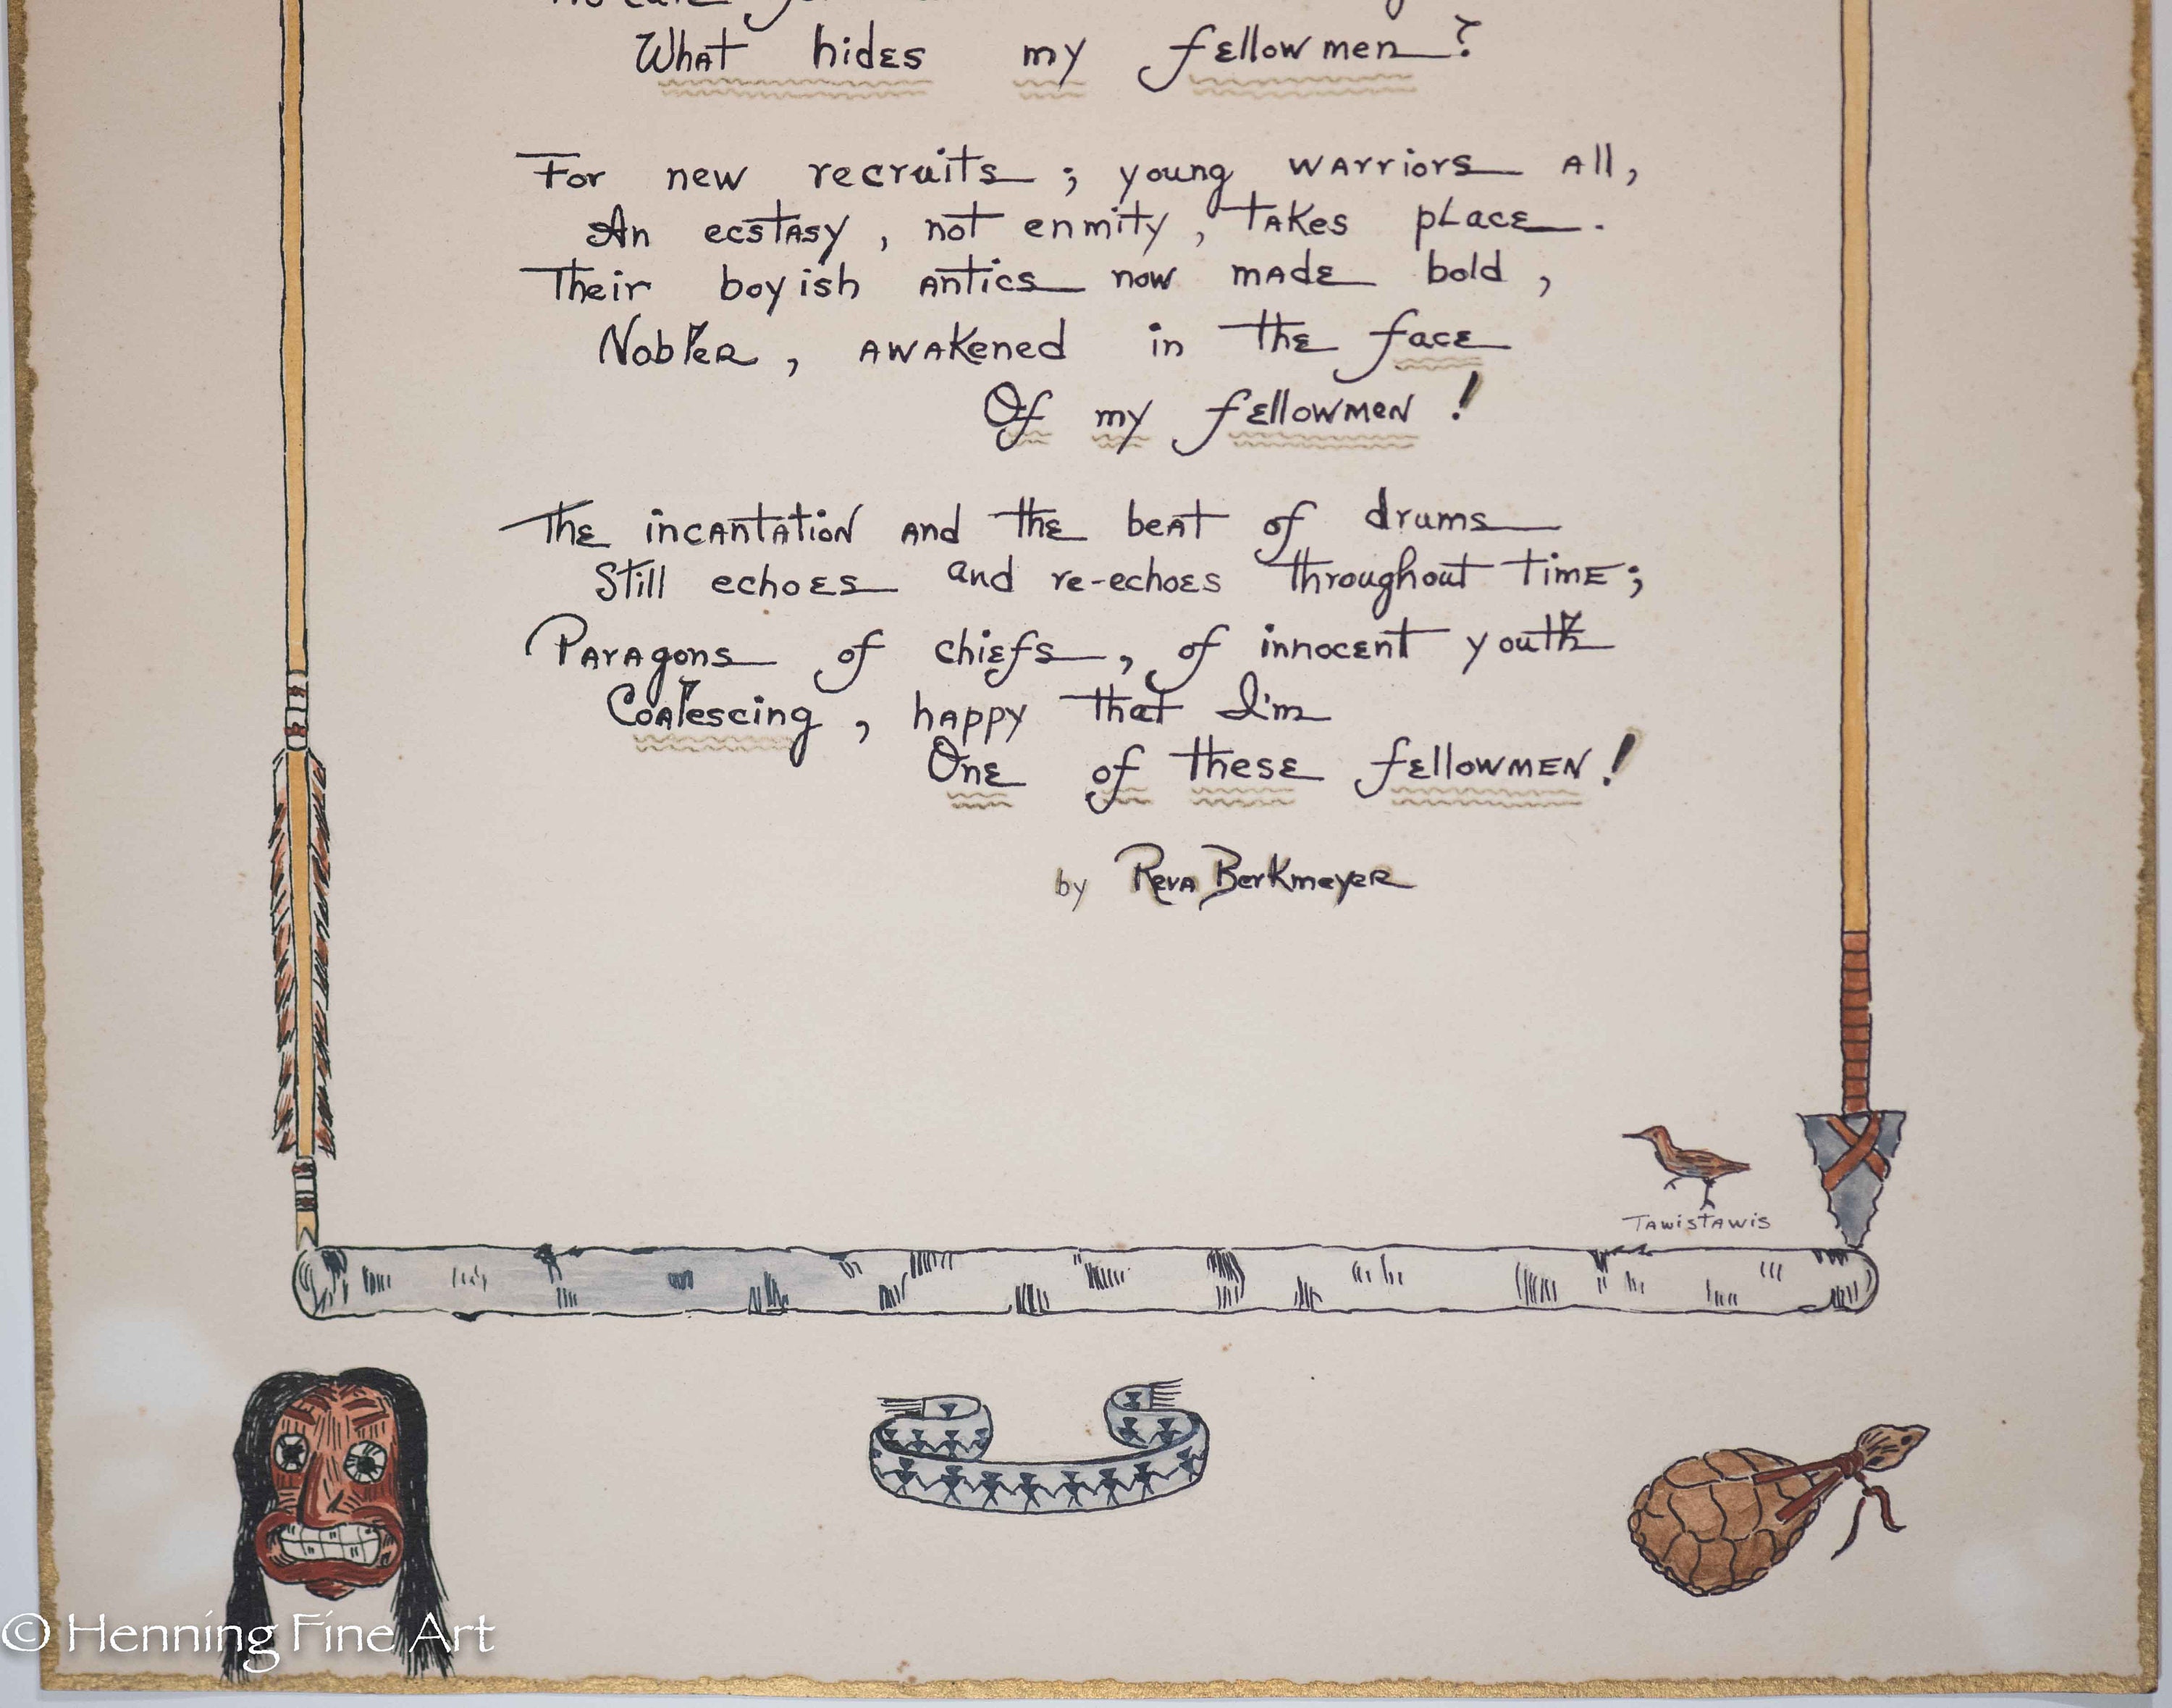 What hides my fellowmen?
For new recruits; young warriors all,
An ecstasy, not enmity, takes place.
Their boyish antics now made bold,
Nobler, awakened in the face
Of my fellowmen!
The incantation and the beat of drums
Still echoes and re-echoes throughout time;
Paragons of chiefs, of innocent youth
Coalescing, happy that I'm
One of these fellowmen!
by Reva Berkmeyer
TAWISTAWIS
© Henning Fine Art